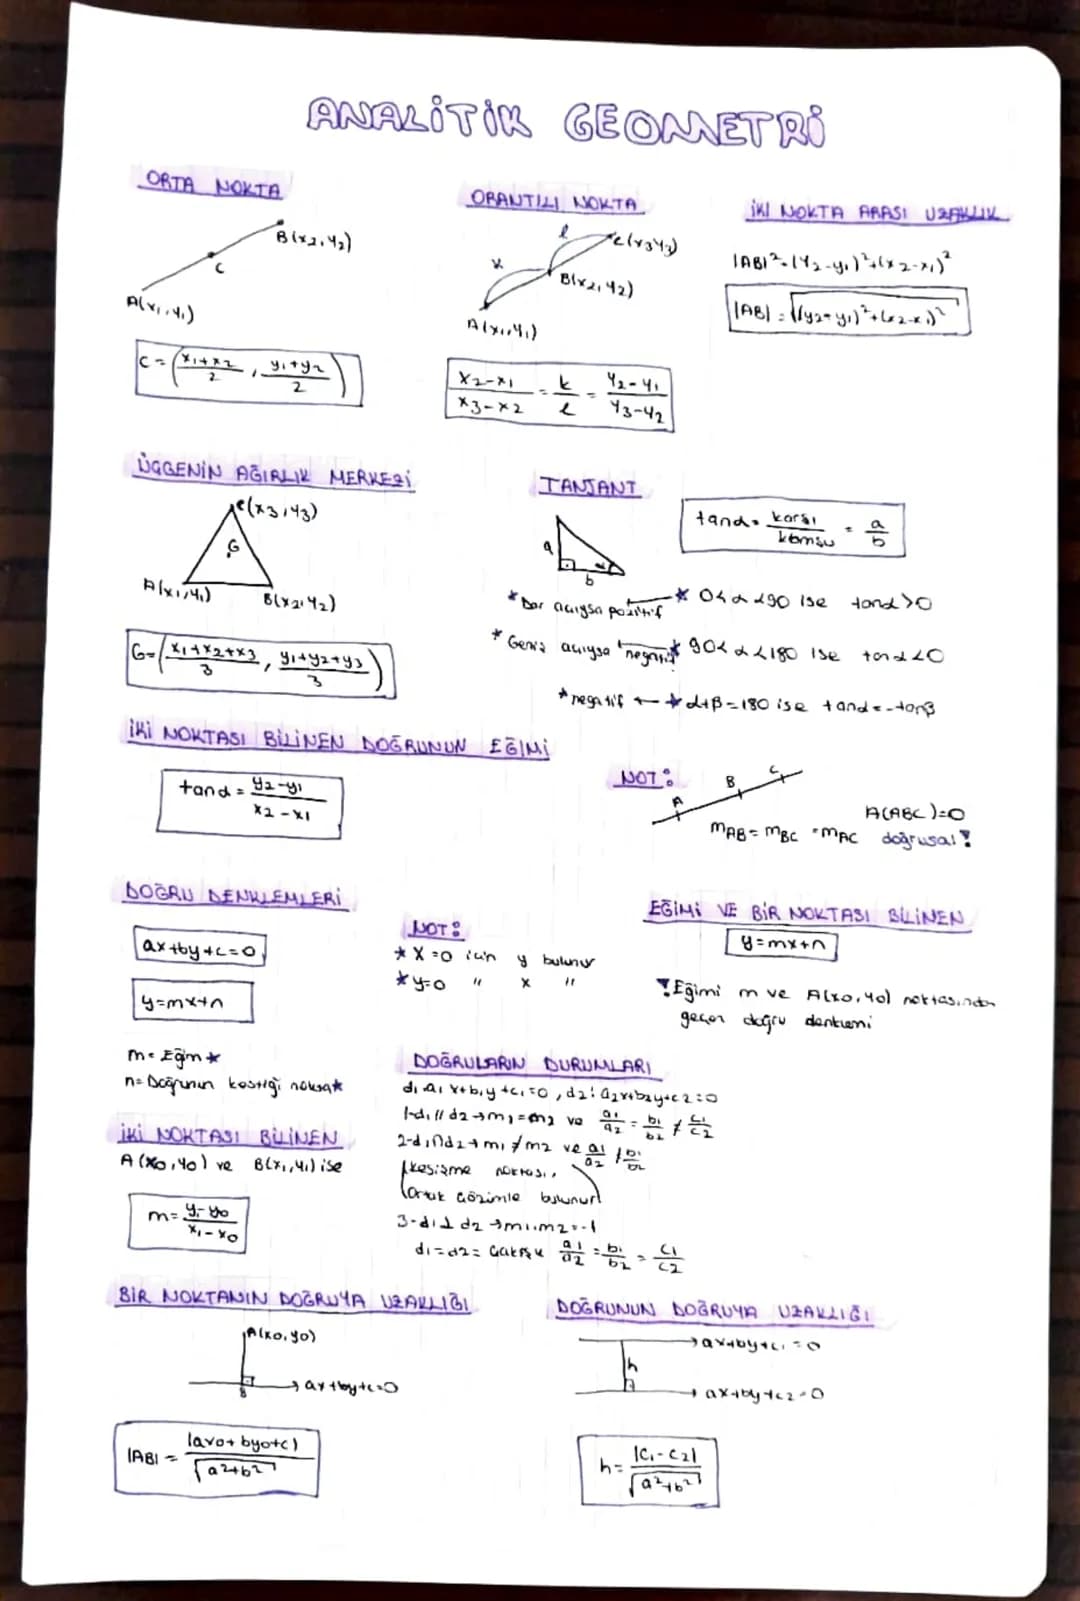 ANALİTİK GEOMETRİ
ORTA NOKTA
B(x2,y2)
C
A(x1,y1)
C = (x1+x2/2 , y1+y2/2)
ORANTILI NOKTA
l
C(x3y3)
k
B(x2,y2)
A(x1,y1)
x2-x1/x3-x2 = k/l = y2-y1/y3-y2
İKİ NOKTA ARASI UZAKLIK
|AB|²=(y2-y1)²+(x2-x1)²
|AB| = √(y2-y1)²+(x2-x1)²
ÜÇGENİN AĞIRLIK MERKEZİ
C(x3,y3)
G
A(x1,y1)
B(x2,y2)
G=(x1+x2+x3/3 , y1+y2+y3/3)
TANJANT
a
α
b
tanα = karşı/komşu = a/b
*Dar açıysa pozitif ← * 0<α<90 ise tanα>0
*Geniş açıysa negatif ← * 90<α<180 ise tanα<0
*negatif ← * α+β=180 ise tanα=-tanβ
İKİ NOKTASI BİLİNEN DOĞRUNUN EĞİMİ
tanα = y2-y1/x2-x1
NOT:
A
B
C
A(ABC)=0
mAB = mBC = mAC doğrusal!
DOĞRU DENKLEMLERİ
ax+by+c=0
y=mx+n
m= Eğim*
n= Doğrunun kestiği nokta*
NOT:
* x=0 için y bulunur
* y=0 " x "
EĞİMİ VE BİR NOKTASI BİLİNEN
y=mx+n
! Eğimi m ve A(x0,y0) noktasından
geçen doğru denklemi
DOĞRULARIN DURUMLARI
d1 a1x+b1y+c1=0, d2: a2x+b2y+c2=0
1-d1//d2→m1=m2 ve a1/a2 = b1/b2 ≠ c1/c2
2-d1∩d2→m1≠m2 ve a1/a2 ≠ b1/b2
kesişme noktası,
ortak çözümle bulunur
3-d1⊥d2→m1.m2=-1
d1=d2= Çakışık a1/a2 = b1/b2 = c1/c2
İKİ NOKTASI BİLİNEN
A(x0,y0) ve B(x1,y1) ise
m= y1-y0/x1-x0
BİR NOKTANIN DOĞRUYA UZAKLIĞI
A(x0,y0)
B
ax+by+c=0
|AB| = |ax0+by0+c|/√a²+b²
DOĞRUNUN DOĞRUYA UZAKLIĞI
ax+by+c1=0
h
ax+by+c2=0
h= |c1-c2|/√a²+b²